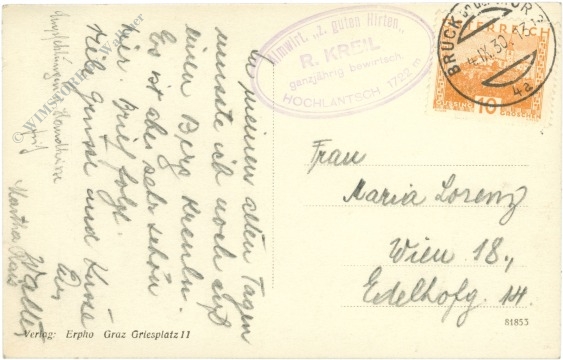 In meinen alten Tagen
musste ich noch auf
einen Berg kraxeln.
Es ist aber sehr schön
hier. Brief folgt.
Viele Grüsse und Küsse
Walter
Martha
Almwirt. „Z. guten Hirten„
R. KREIL
ganzjährig bewirtsch.
HOCHLANTSCH 1722 m
BRUCK
IX. 30
4a
ÖSTERREICH
10
GROSCHEN
Frau
Maria Lorenz
Wien 18.,
Edelhofg. 14.
Verlag: Erpho Graz Griesplatz 11
81853